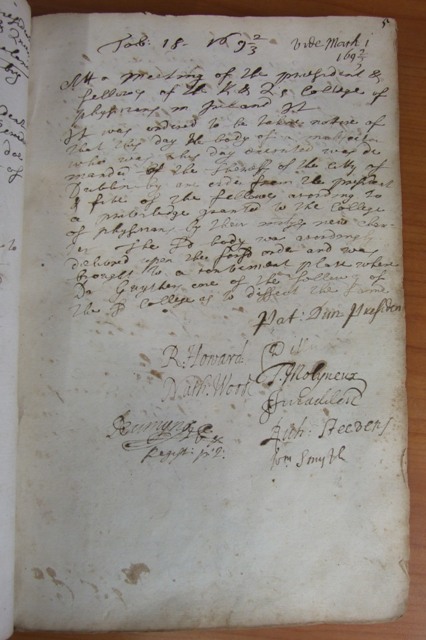 5
Feb: 18 · 169 2/3
Vide March 1
169 2/3
Att a meeting of the president &
fellows of the K & Qs College of
physitians in Ireland It
It was ordered to be taken notice of
that this day the body of a malefactor
who was this day executed was de
manded of the Sheriffs of the city of
Dublin by an order from the president
& five of the fellows according to
a priveledge granted to the college
of physitians by their new char
ter The sd body was accordingly
deliverd upon the foresd order and was
brought to a convenient place where
Dr Guyther one of the fellows of
the sd College is to dissect the same
Pat: Dun President
R: Howard
Dun: Wood
T: Molyneux
Rich: Steevens
Wm Smyth
Regist: